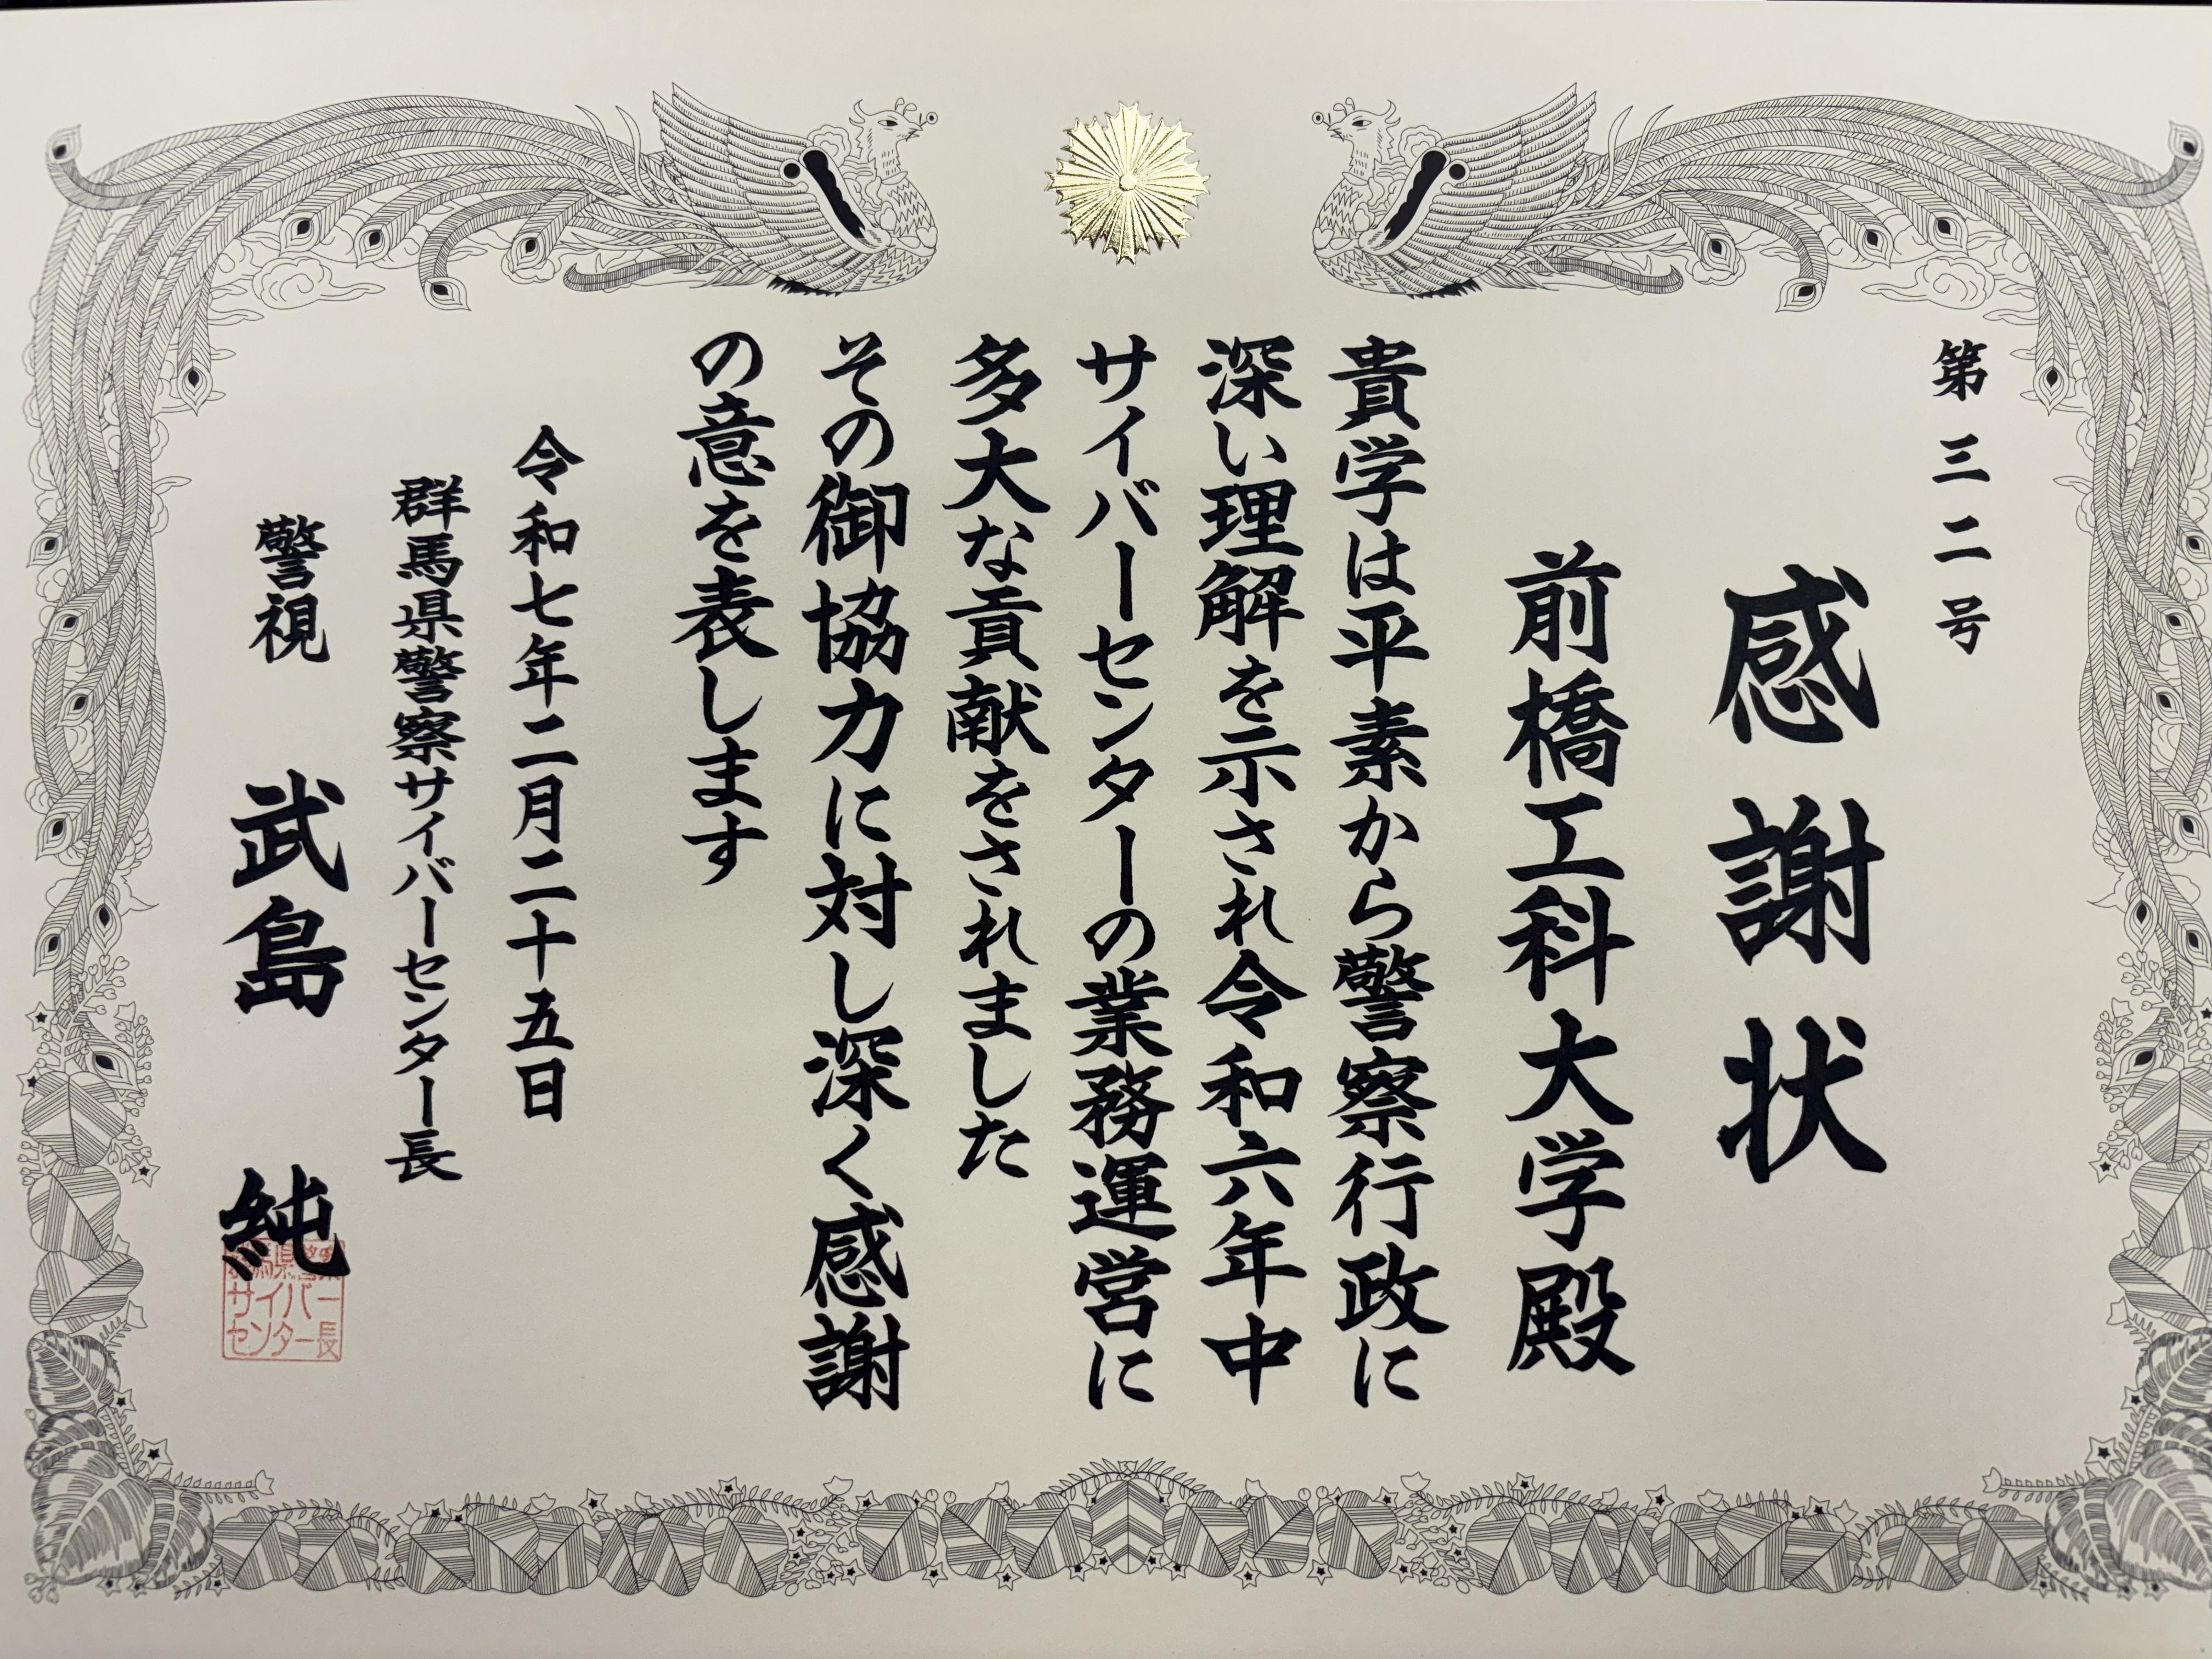 第三二号
感謝状
前橋工科大学殿
貴学は平素から警察行政に
深い理解を示され令和六年中
サイバーセンターの業務運営に
多大な貢献をされました
その御協力に対し深く感謝
の意を表します
令和七年二月二十五日
群馬県警察サイバーセンター長
警視 武島 純
群馬県警察
サイバー
センター長